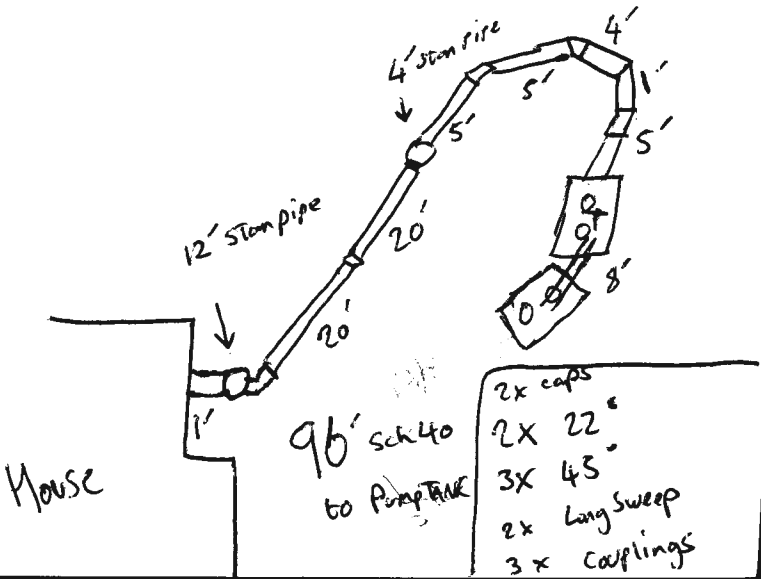 4' stanpipe
4'
5'
1'
5'
5'
20'
12' stanpipe
20'
8'
1'
House
96' sch40
to PumpTANK
2x caps
2x 22°
3x 45°
2x Long Sweep
3x Couplings